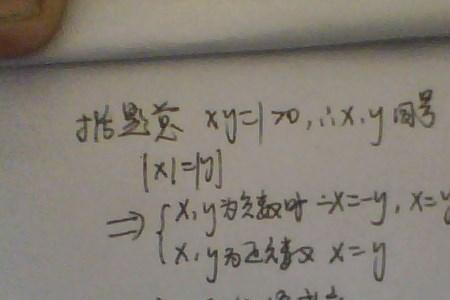 据题意 xy=1>0,∴x,y同号
|x|=|y|
⇒{x,y为负数时 -x=-y, x=y
x,y为正负数 x=y